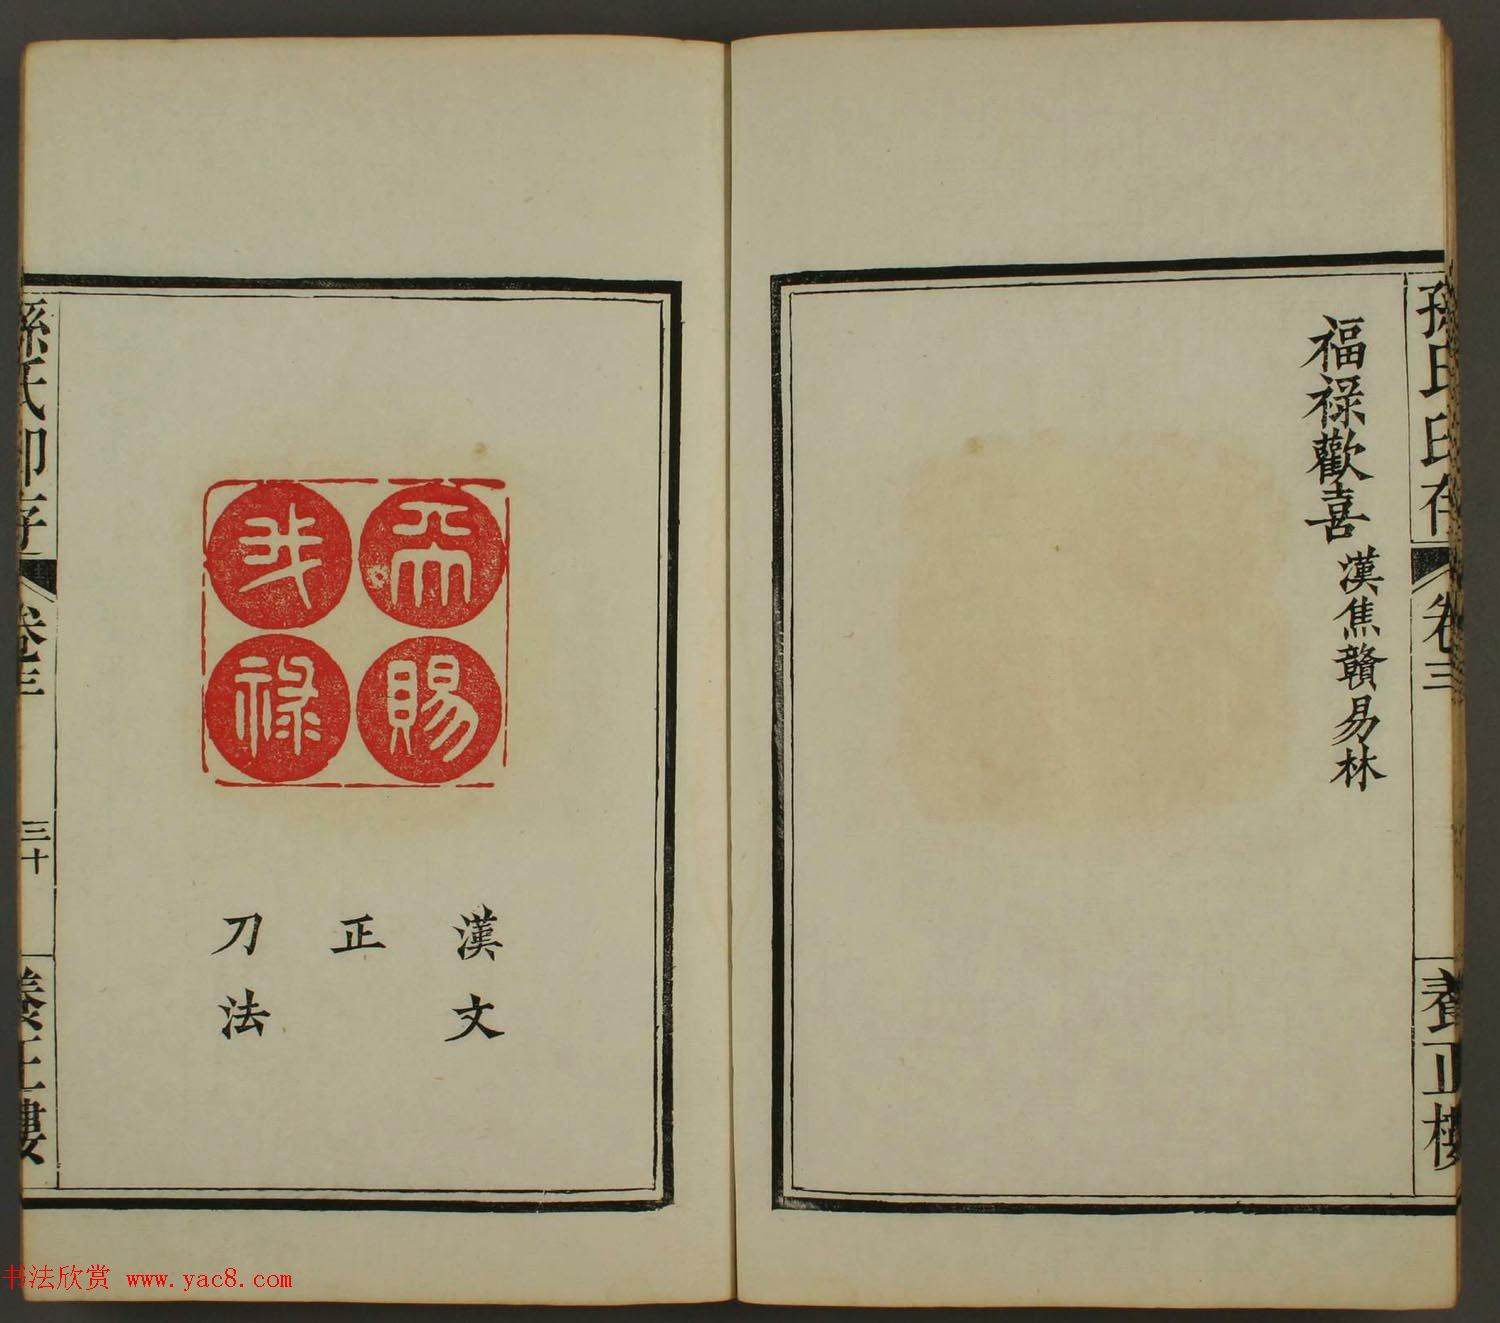 孫氏印存
卷三
養正樓
福祿歡喜 漢焦贛易林
天賜
我祿
漢文
正
刀法
孫氏印存
卷三
三十
養正樓
书法欣赏 www.yac8.com